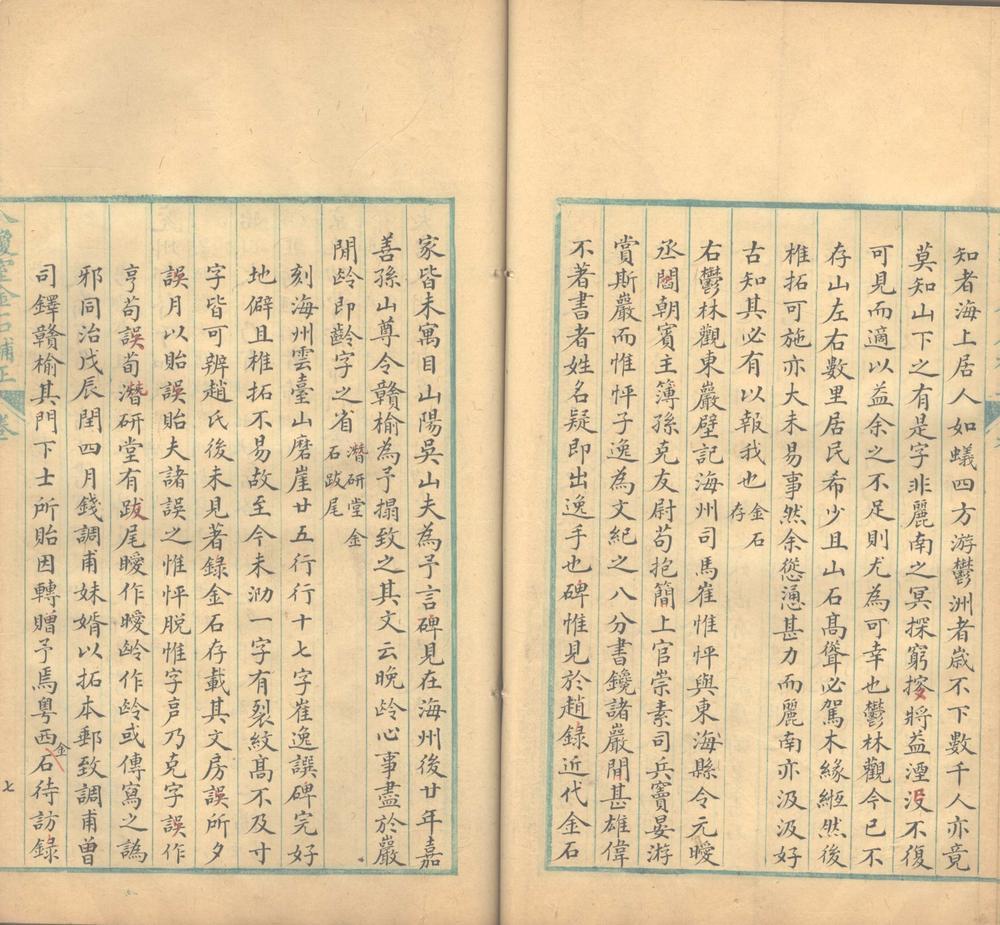 知者海上居人如蟻四方游鬱洲者歲不下數千人亦竟
莫知山下之有是字非麗南之冥探窮搜將益湮沒不復
可見而適以益余之不足則尤為可幸也鬱林觀今已不
存山左右數里居民希少且山石高聳必駕木緣緪然後
椎拓可施亦大未易事然余慫慂甚力而麗南亦汲汲好
古知其必有以報我也金石存
右鬱林觀東巖壁記海州司馬崔惟怦與東海縣令元曖
丞閻朝賓主簿孫克友尉苟抱簡上官崇素司兵竇晏游
賞斯巖而惟怦子逸為文紀之八分書鑱諸巖間甚雄偉
不著書者姓名疑即出逸手也碑惟見於趙錄近代金石
家皆未寓目山陽吳山夫為予言碑見在海州後廿年嘉
善孫山尊令贛榆為予搨致之其文云晚齡心事盡於巖
閒齡即齡字之省潛研堂金石跋尾
刻海州雲臺山磨崖廿五行行十七字崔逸譔碑完好
地僻且椎拓不易故至今未泐一字有裂紋高不及寸
字皆可辨趙氏後未見著錄金石存載其文房誤所夕
誤月以貽誤貽夫諸誤之惟怦脫惟字亨乃克字誤作
亨苟誤荀潛研堂有跋尾曖作曖齡作齡或傳寫之譌
邪同治戊辰閏四月錢調甫妹婿以拓本郵致調甫曾
司鐸贛榆其門下士所貽因轉贈予焉粵西金石待訪錄
七
瓊室金石補正 卷